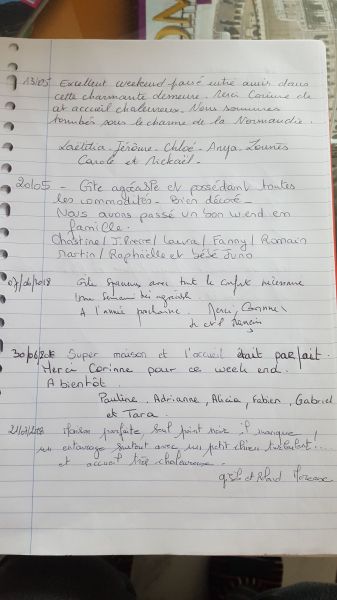 13/05 Excellent weekend passé entre amis dans
cette charmante demeure. Merci Corinne de
cet accueil chaleureux. Nous sommes
tombés sous le charme de la Normandie.
Laëtitia - Jérôme - Chloé - Anya - Lounès
Carole et Mickaël.
20/05 - Gîte agréable et possédant toutes
les commodités. Bien décoré.
Nous avons passé un bon w.end en
famille.
Christine / J.Pierre / Laura / Fanny / Romain
Martin / Raphaëlle et bébé Juno
07/06/2018 Gîte Spacieux avec tout le confort nécessaire
Une Semaine très agréable
A l'année prochaine. Merci Corinne
30/06/ Super maison et l'accueil était parfait.
Merci Corinne pour ce week end.
A bientôt.
Pauline, Adrianne, Alicia, Fabien, Gabriel
et Tara.
21/07/2018 Maison parfaite seul point noir il manque
un entourage surtout avec un petit chien turbulent....
et accueil très chaleureuse.